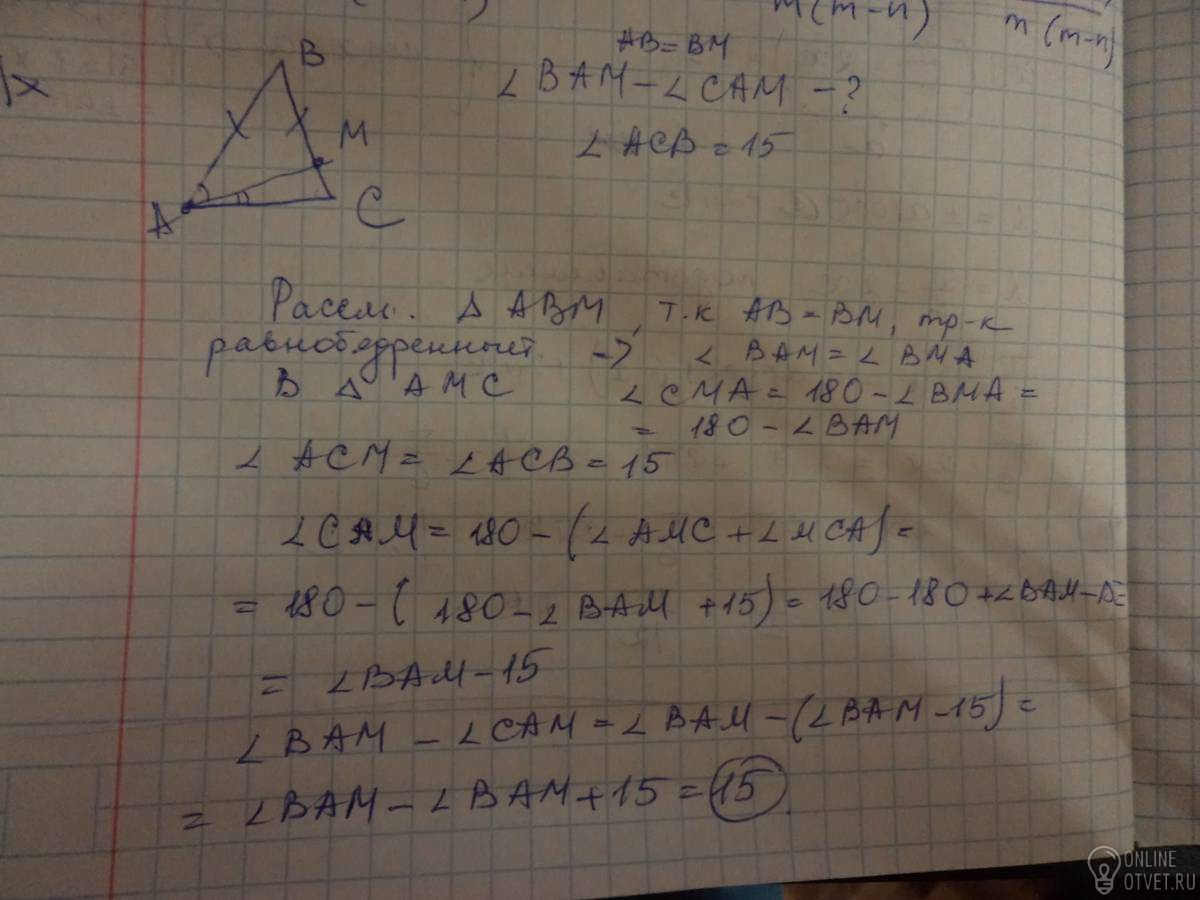 m(m-n)
n(m-n)
x
B
M
A
C
AB=BM
∠BAM-∠CAM-?
∠ACB=15
Рассм. Δ ABM, т.к AB=BM, тр-к
равнобедренный -> ∠BAM=∠BMA
В Δ AMC ∠CMA=180-∠BMA=
=180-∠BAM
∠ACM=∠ACB=15
∠CAM=180-(∠AMC+∠MCA)=
=180-(180-∠BAM+15)=180-180+∠BAM-15=
=∠BAM-15
∠BAM-∠CAM=∠BAM-(∠BAM-15)=
=∠BAM-∠BAM+15=15.
ONLINE
OTVET.RU